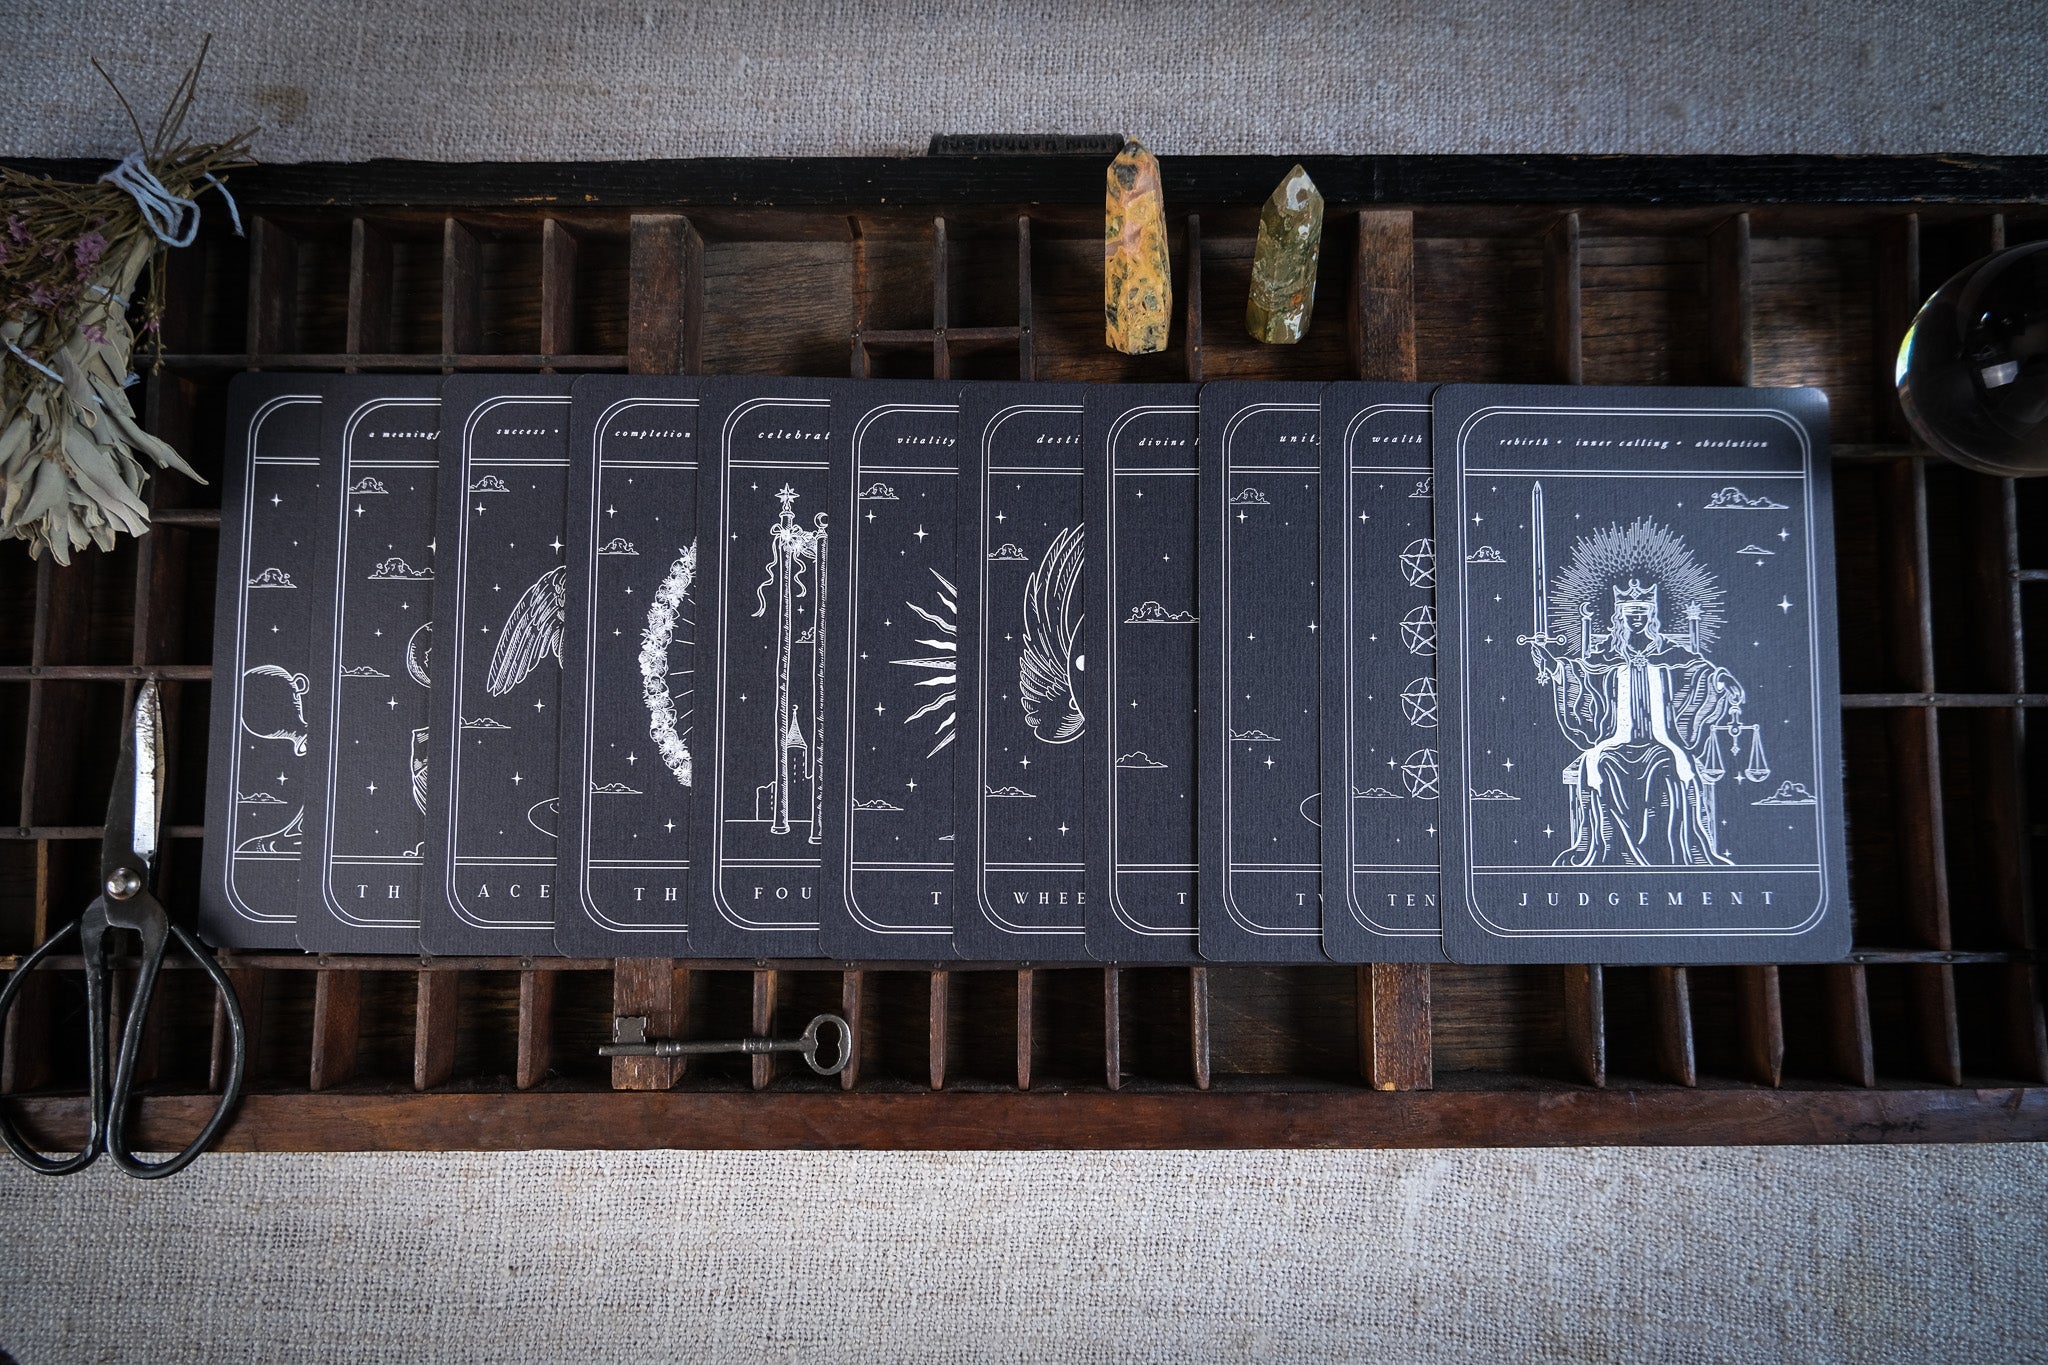 a meaningf
success •
completion
celebrat
vitality
desti
divine l
unity
wealth
rebirth • inner calling • absolution
TH
ACE
TH
FOU
T
WHEE
T
TW
TEN
JUDGEMENT